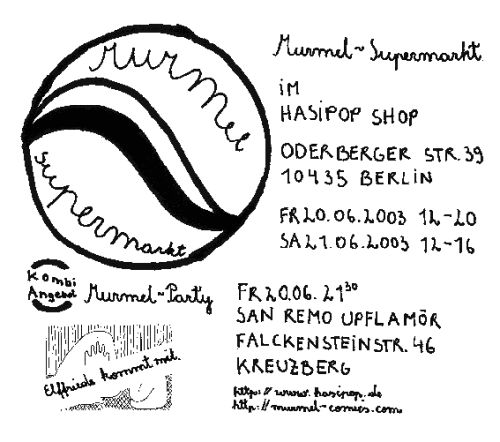 Murmel
Supermarkt
Murmel~Supermarkt
iM
HASiPOP SHOP
ODERBERGER STR. 39
10435 BERLiN
FR 20.06.2003 12-20
SA 21.06.2003 12-16
Kombi
Angebot
Murmel~Party
FR 20.06. 21³⁰
SAN REMO UPFLAMÖR
FALCKENSTEiNSTR. 46
KREUZBERG
Elffriede kommt mit
http://www.hasipop.de
http://murmel-comics.com